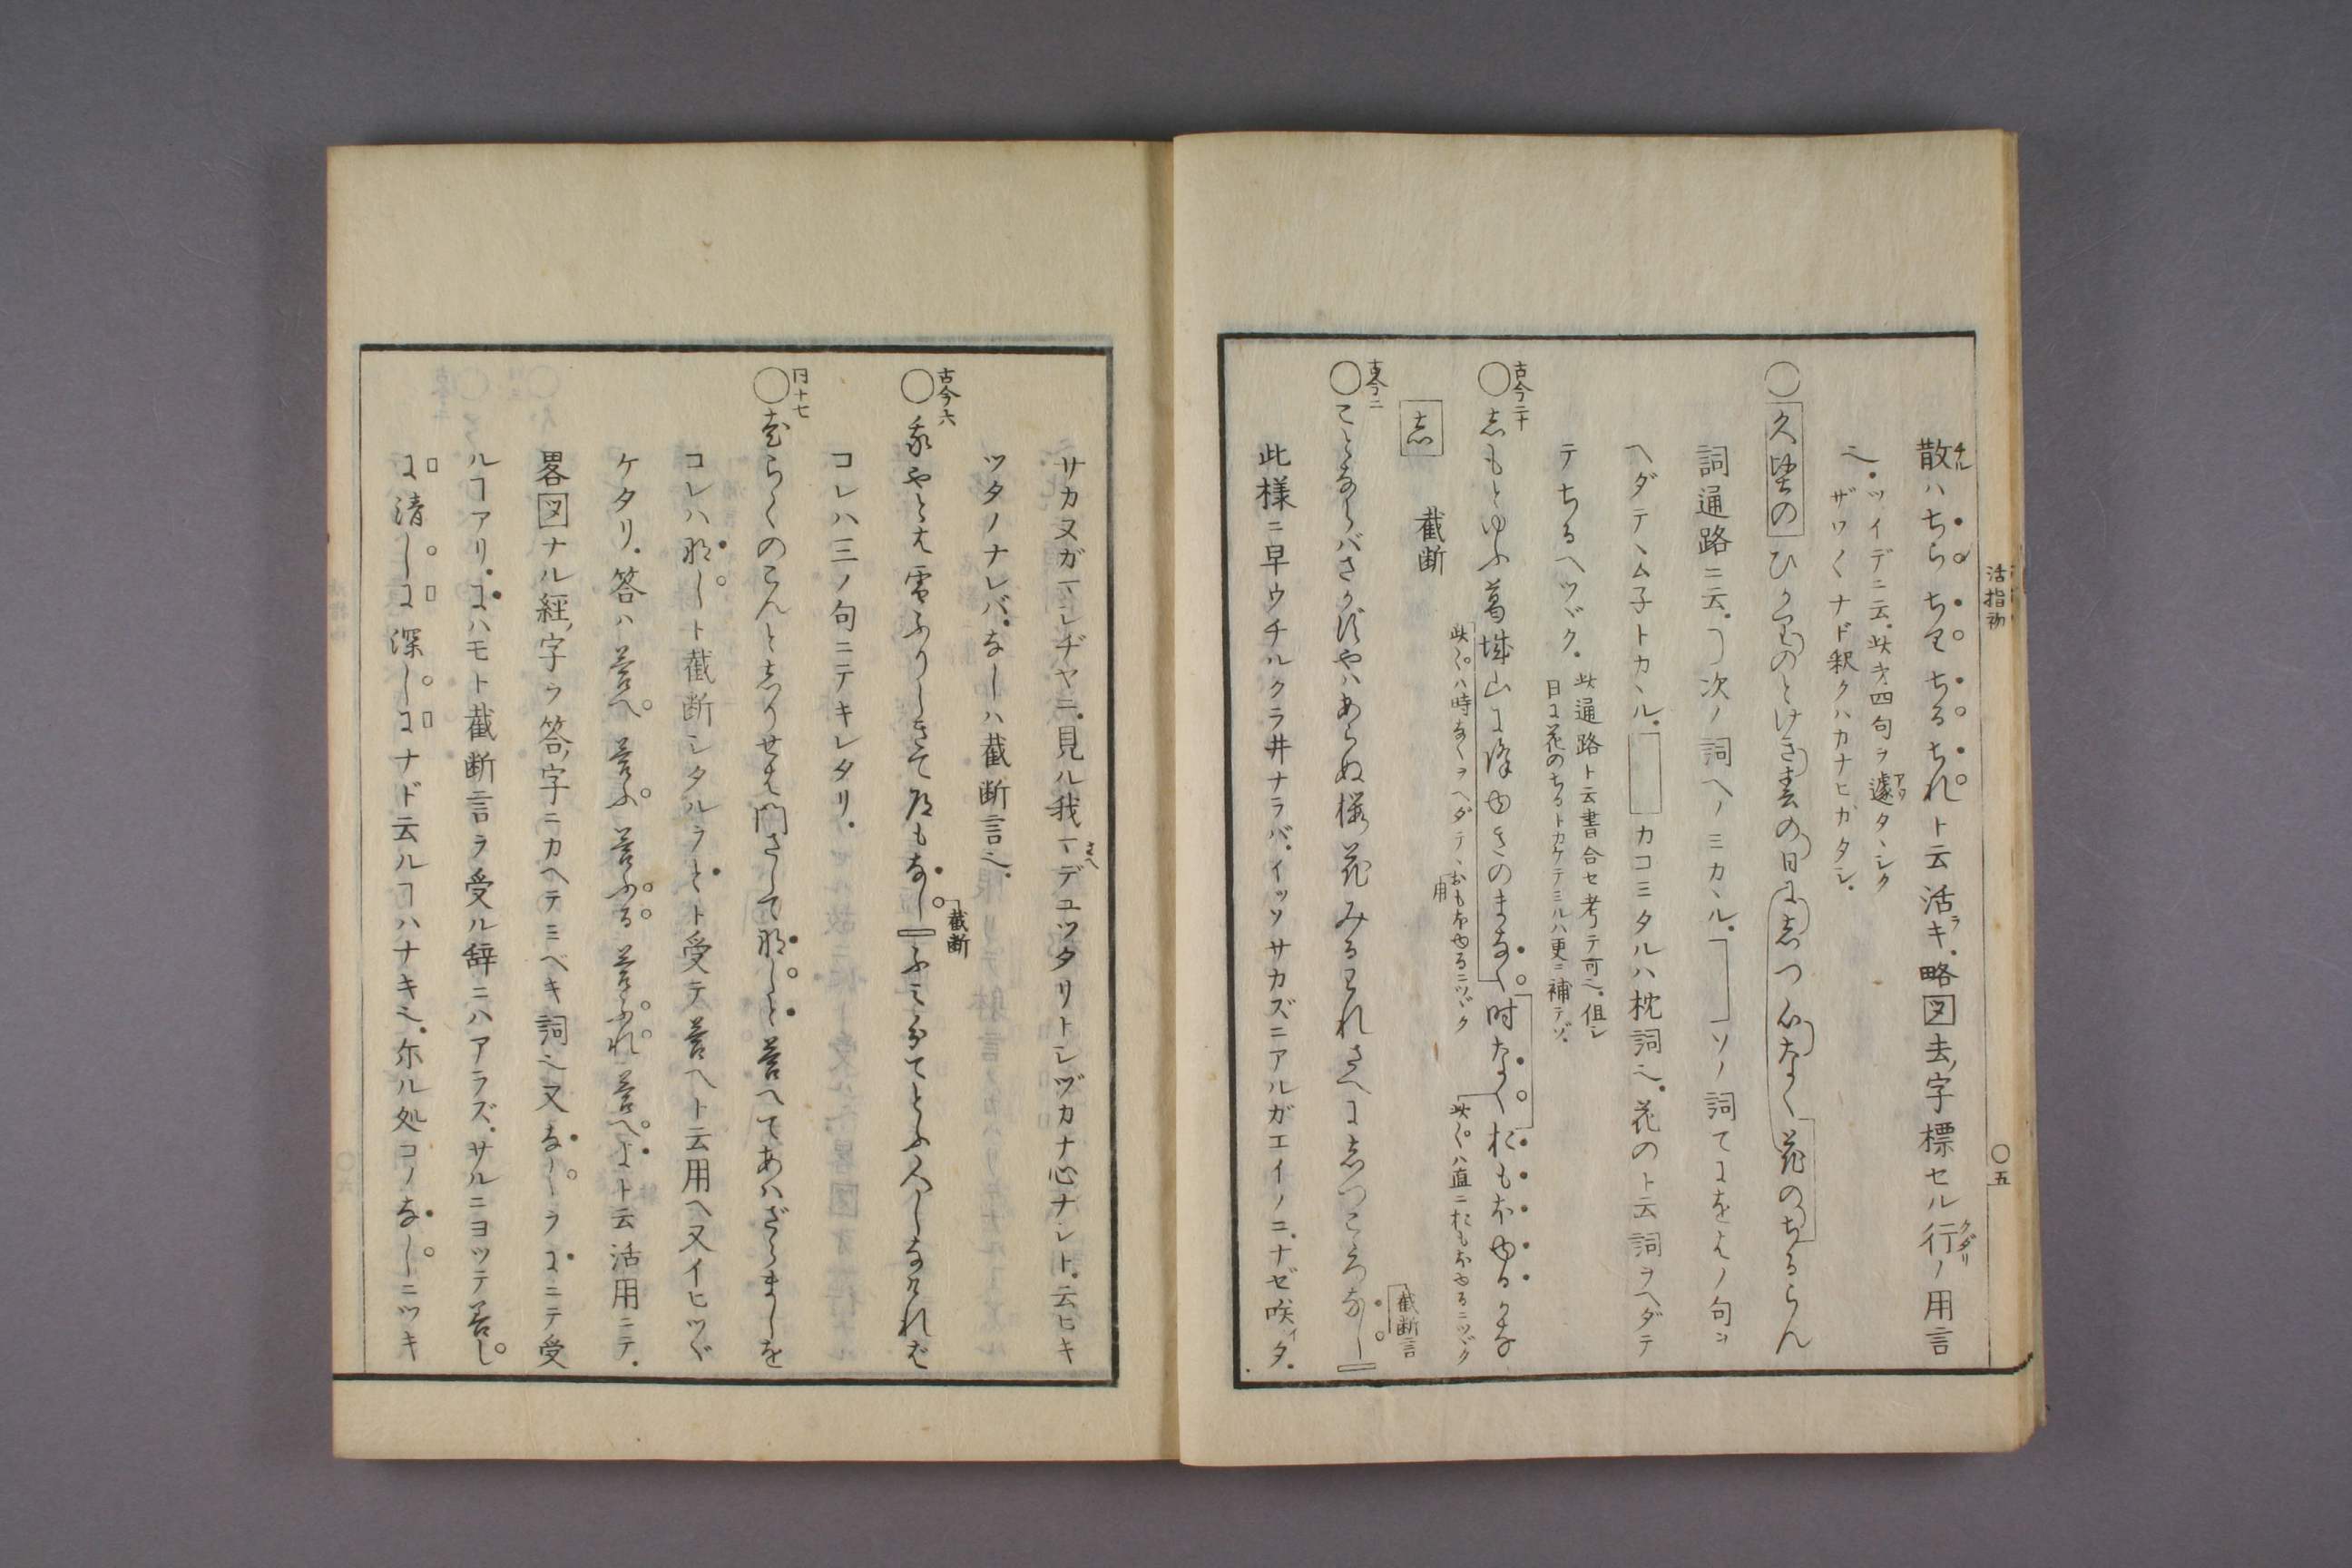 活指初
〇五
散ハちら ちり ちる ちれト云活キ。略図去ノ字標セル行ノ用言
也。ツイデニ云。此才四句ヲ遽タヽシク
ザワ〳〵ナド釈クハカナヒガタシ。
〇久堅のひかりのとけき春の日にしつ心なく花のちるらん
詞通路ニ云。次ノ詞ヘノミカヽル。ソノ詞てにをはノ句ヲ
ヘダテヽム子トカヽル。カコミタルハ枕詞也。花のト云詞ヲヘダテ
テちるヘツヾク。
此通路ト云書合セ考テ可也。但シ
日に花のちるトカケテミルハ更ニ補テゾ。
古今二十
〇志もとゆふ葛城山に降ゆきのまなく時なくおもほゆるかな
此くハ時なくヲヘダテヽおもほゆるニツヾク
用
此くハ直ニおもほゆるニツヾク
志
截断
古今二
〇ことならバさかずやハあらぬ桜花みるわれさへにしつこゝろなし
截断言
此様ニ早ウチルクラ井ナラバ。イッソサカズニアルガエイノニ。ナゼ咲イタ。
サカヌガマシヂヤニ。見ル我マデユツタリトシヅカナ心ナシト。云ヒキ
さへ
ツタノナレバ。なしハ截断言也。
古今六
〇我やとは雪ふりしきて道もなしふみわけてとふ人しなけれは
截断
コレハ三ノ句ニテキレタリ。
同十七
〇老らくのこんとしりせは門さしてなしと答へてあハざらましを
コレハなしト截断シタルヲとト受テ答へト云用ヘ又イヒツヾ
ケタリ。答ハ答へ 答ふ 答ふる 答ふれ 答へよト云活用ニテ。
畧図ナル経ノ字ヲ答ノ字ニカヘテミベキ詞也又なしヲにニテ受
ルヿアリ。にハモト截断言ヲ受ル辞ニハアラズ。サルニヨツテ善し
に清しに深しにナド云ルヿハナキ也。尓ル処コノなしニツキ